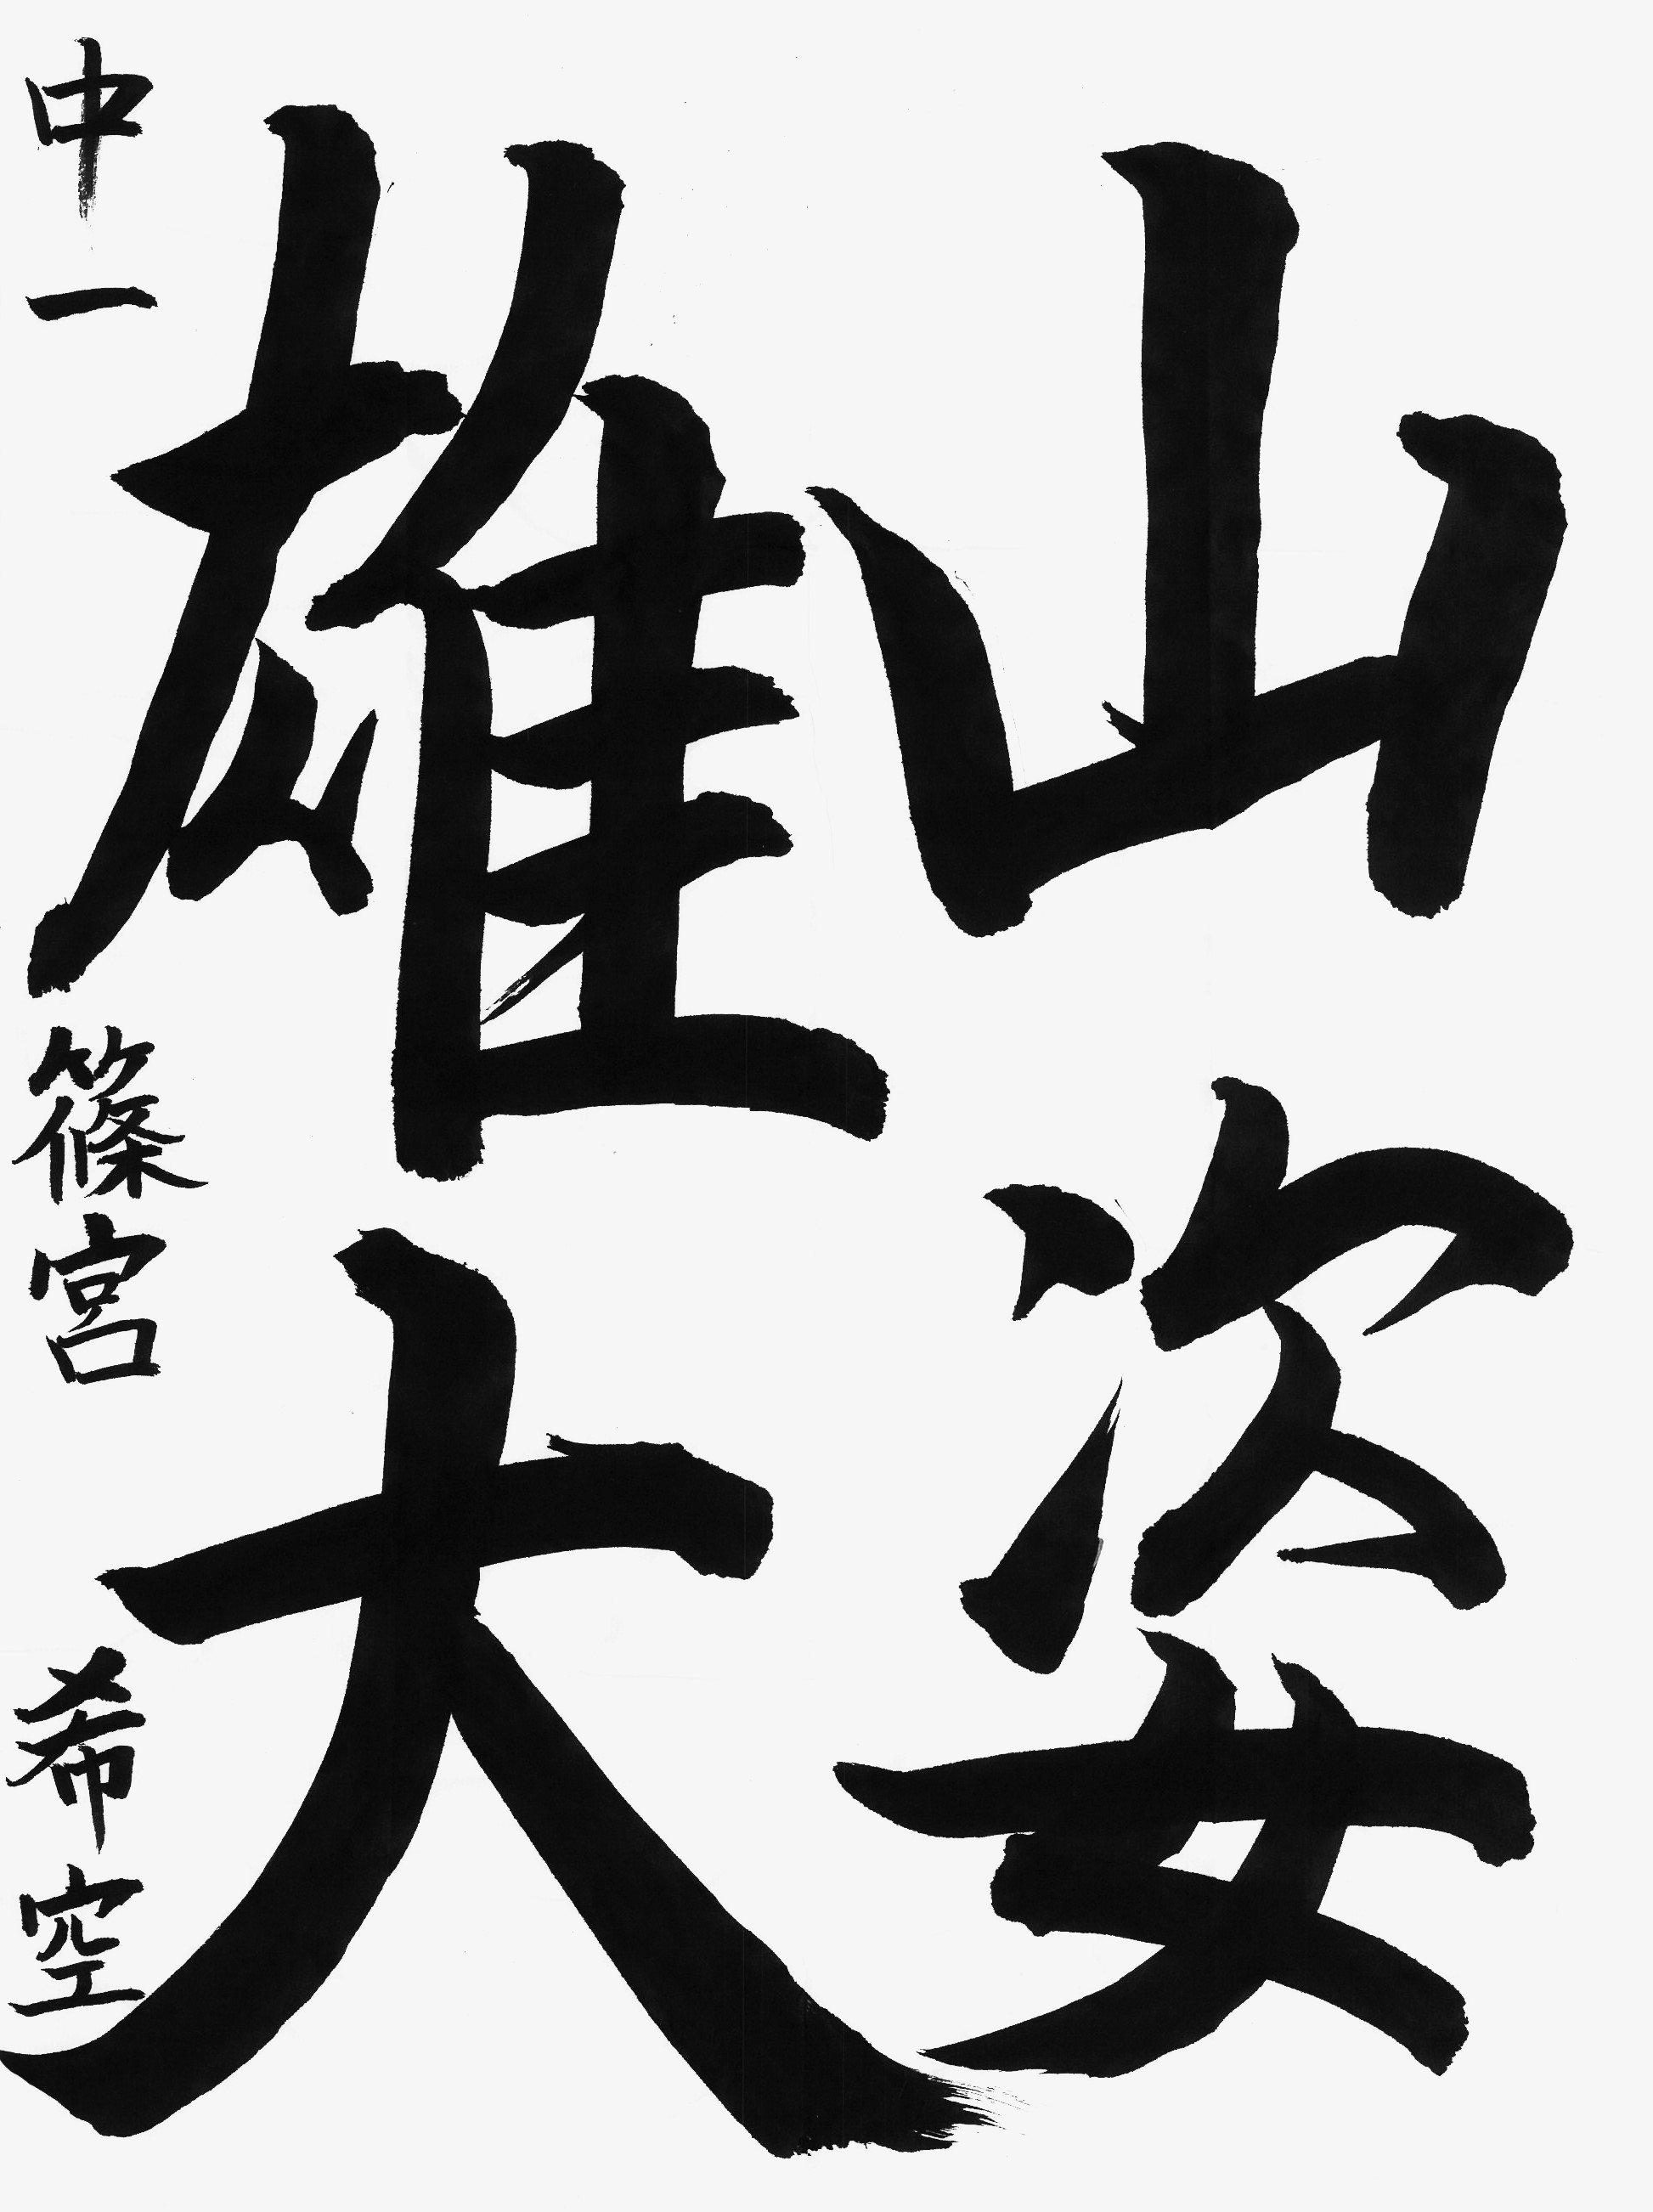 山姿
雄大
中一 篠宮 希空